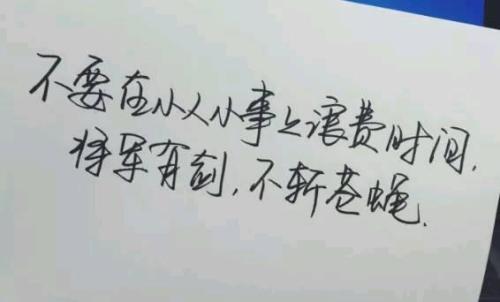 不要在小人小事上浪费时间，
将军有剑，不斩苍蝇.